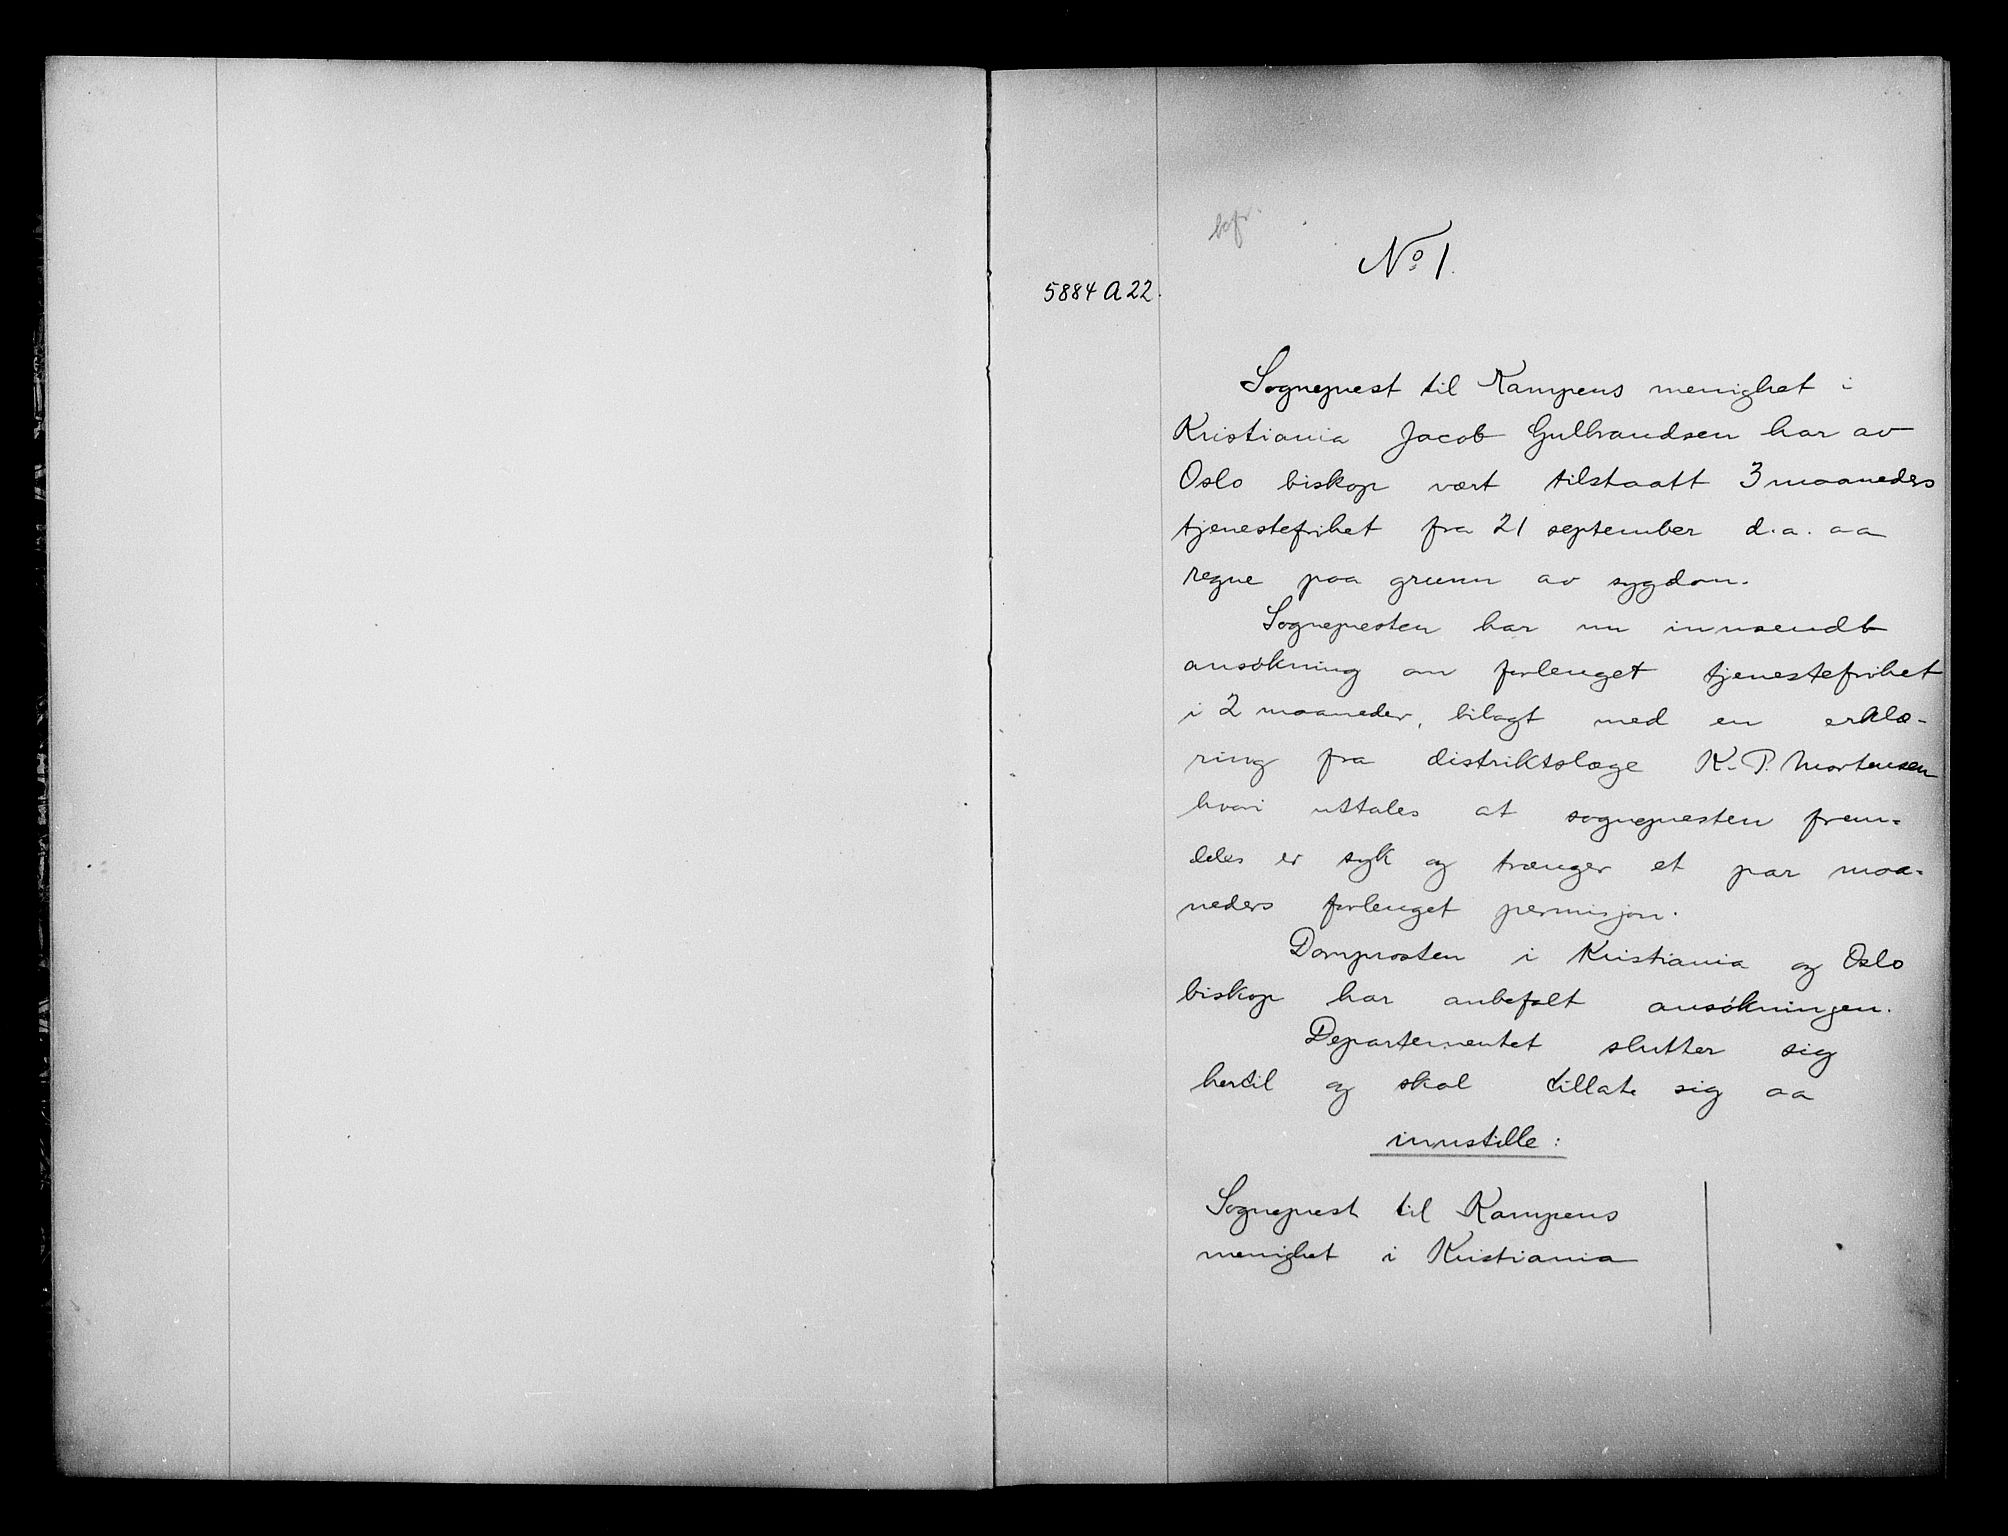 No 1.
5884 A 22.
Sogneprest til Kampens menighet i
Kristiania Jacob Gulbrandsen har av
Oslo biskop vært tilstaatt 3 maaneders
tjenestefrihet fra 21 september d.a. aa
regne paa grunn av sygdom.
Sognepresten har nu innsendt
ansökning om forlenget tjenestefrihet
i 2 maaneder, bilagt med en erklæ-
ring fra distriktslæge K. P. Mortensen
hvori uttales at sognepresten frem-
deles er syk og trænger et par maa-
neders forlenget permisjon.
Domprosten i Kristiania og Oslo
biskop har anbefalt ansökningen.
Departementet slutter sig
hertil og skal tillate sig aa
innstille:
Sogneprest til Kampens
menighet i Kristiania